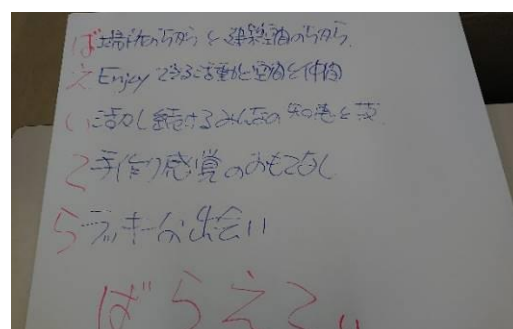 ば 場所のちからと建築空間のちから
え Enjoy できる活動と空間と仲間
い 活かし続けるみんなの知恵と技
て 手作り感覚のおもてなし
ら ラッキーな出会い
ばらえてぃ